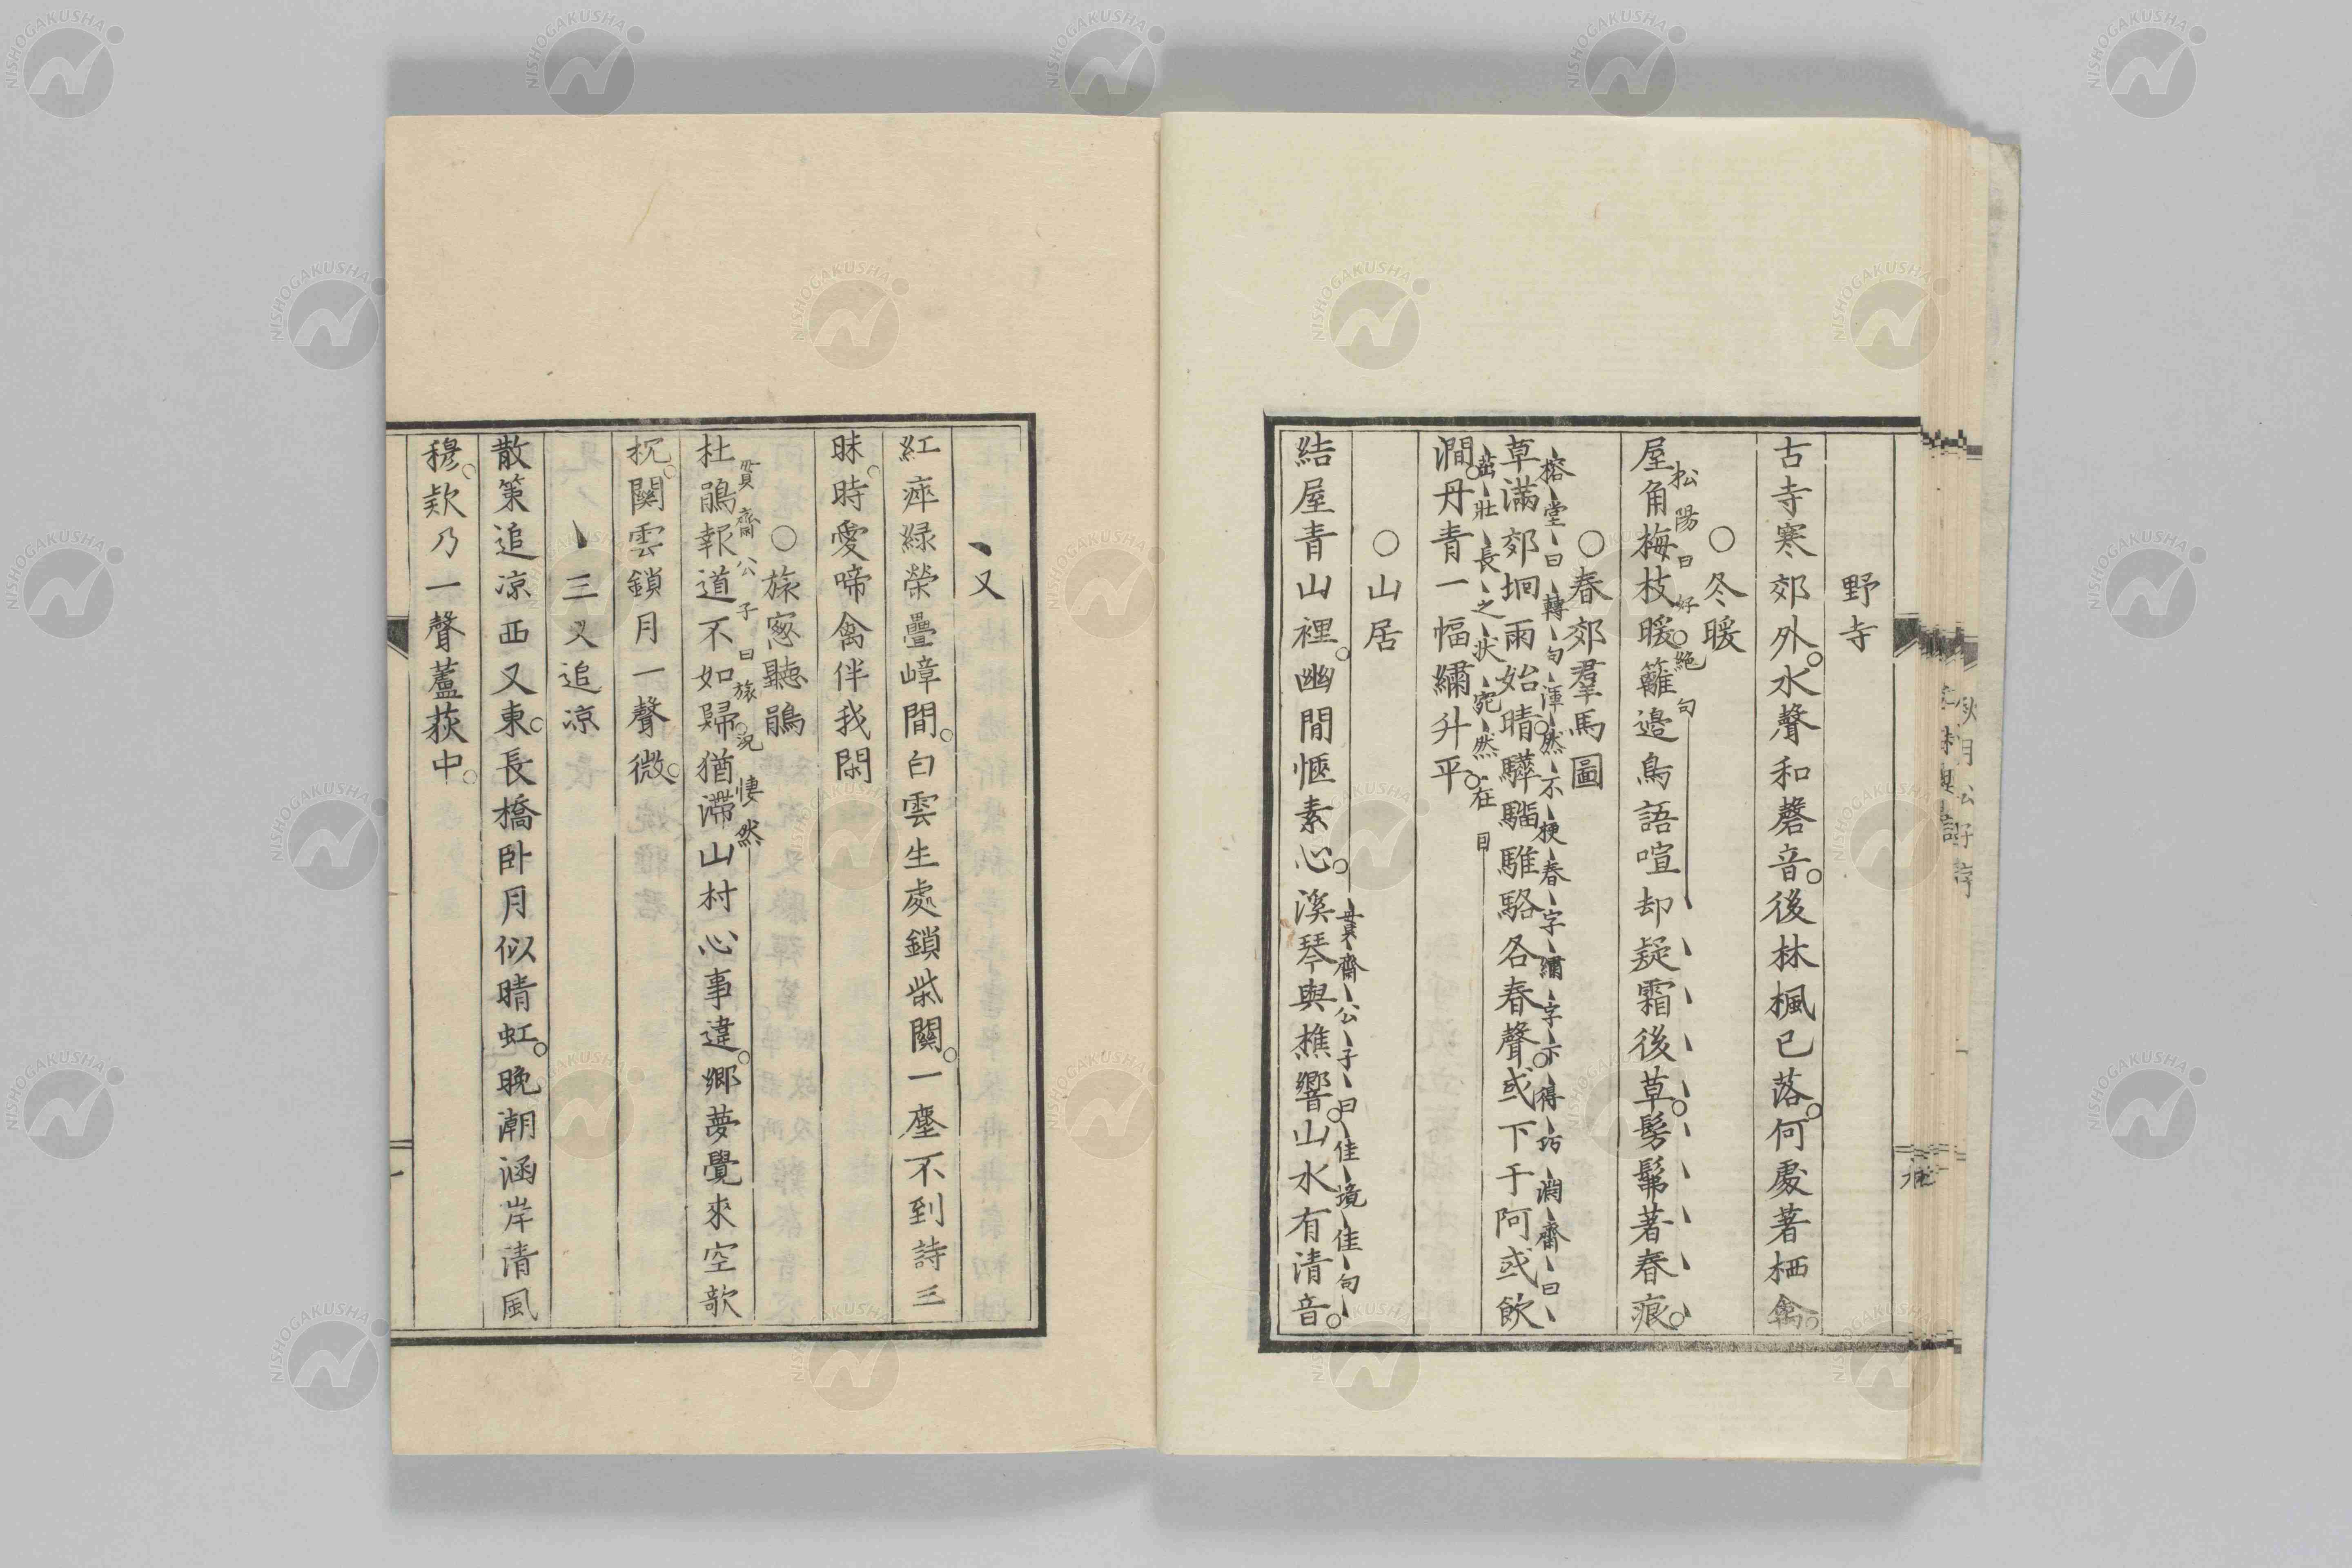 野寺
古寺寒郊外水聲和磬音後林楓已落何處著栖禽
○冬暖
松陽曰好絕句
屋角梅枝暖籬邊鳥語喧却疑霜後草髣髴著春痕
○春郊羣馬圖
榕堂曰轉句渾然不梗春字繡字亦得巧澗齋曰
草滿郊坰雨始晴驊騮騅駱各春聲或下于阿或飲
茁壯長之狀宛然在目
澗丹青一幅繡升平
○山居
貫齋公子曰佳境佳句
結屋青山裡幽間愜素心溪琴與樵響山水有清音
又
紅瘁綠榮疊嶂間白雲生處鎖柴關一塵不到詩三
昧時愛啼禽伴我閑
○旅窓聽鵑
貫齋公子曰旅況悽然
杜鵑報道不如歸猶滯山村心事違鄉夢覺來空欹
枕關雲鎖月一聲微
三叉追凉
散策追凉西又東長橋卧月似晴虹晚潮涵岸清風
穆欵乃一聲蘆荻中
NISHOGAKUSHA